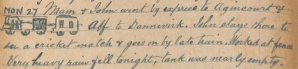 MON 27 Mam & John went by express to Agincourt &
Aff to Dannevirk. John stays there to
see a cricket match & goes on by late train. Worked at fence
Very heavy rain fell tonight, tank was nearly empty.